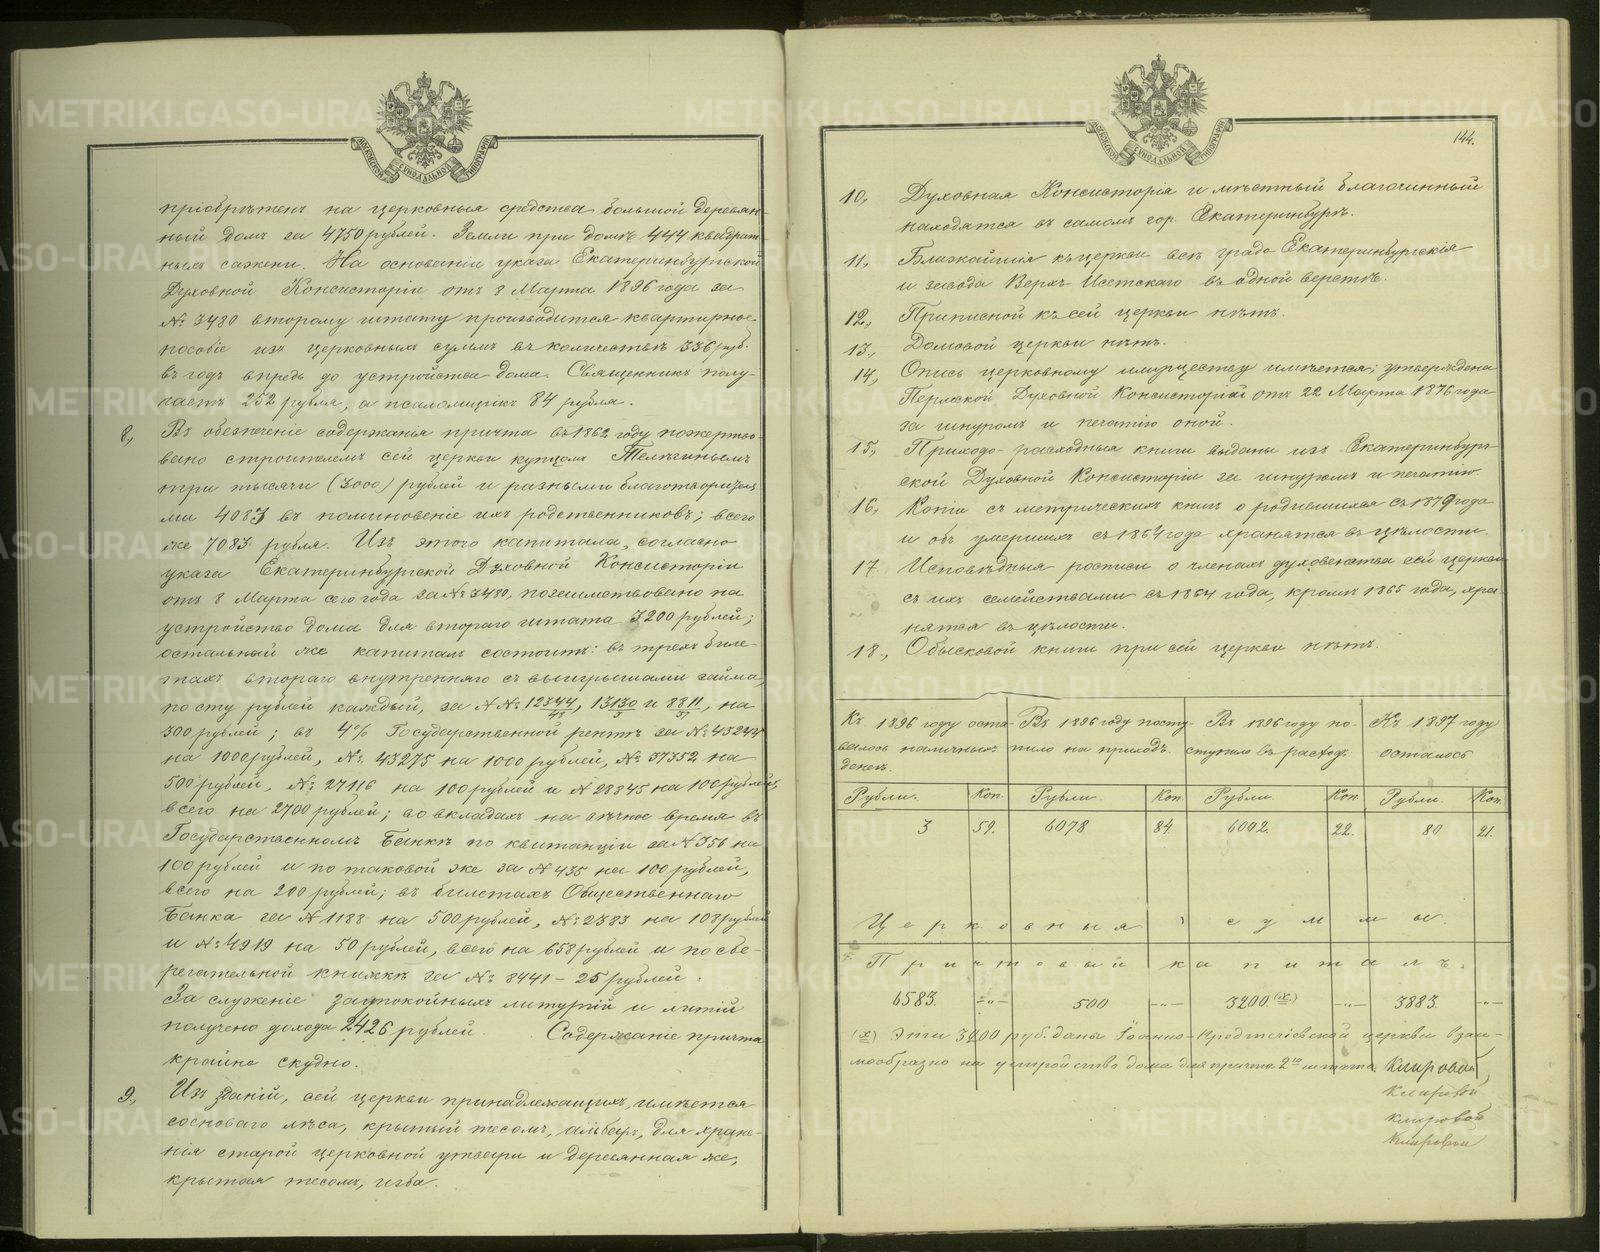 МОСКОВСКОЙ СѴНОДАЛЬНОЙ ТИПОГРАФІИ
пріобрѣтенъ на церковныя средства большой деревян-
ный домъ за 4750 рублей. Земли при домѣ 444 квадрат-
ныхъ сажени. На основаніи указа Екатеринбургской
Духовной Консисторіи отъ 8 Марта 1896 года за
№ 3480 второму штату производится квартирное
пособіе изъ церковныхъ суммъ въ количествѣ 336 руб.
въ годъ впредь до устройства дома. Священникъ полу-
чаетъ 252 рубля, а псаломщикъ 84 рубля.
8, Въ обезпеченіе содержанія причта въ 1862 году пожертво-
вано строителемъ сей церкви купцомъ Телѣгинымъ
три тысячи (3000) рублей и разными благотворителя
ми 4083 въ поминовеніе ихъ родственниковъ; всего
же 7083 рубля. Изъ этого капитала, согласно
указа Екатеринбургской Духовной Консисторіи
отъ 8 Марта сего года за № 3480, позаимствовано на
устройство дома для втораго штата 3200 рублей;
остальный же капиталъ состоитъ: въ трехъ биле-
тахъ втораго внутренняго съ выигрышами займа,
по сту рублей каждый, за №№ 12344/48, 13130/3 и 8811/37, на
300 рублей; въ 4% Государственной рентѣ за № 43244
на 1000 рублей, № 43275 на 1000 рублей, № 37352 на
500 рублей, № 27116 на 100 рублей и № 28345 на 100 рублей,
всего на 2700 рублей; во вкладахъ на вѣчное время въ
Государственномъ Банкѣ по квитанціи за № 356 на
100 рублей и по таковой же за № 435 на 100 рублей,
всего на 200 рублей; въ билетахъ Общественнаго
Банка за № 1188 на 500 рублей, № 2383 на 108 рублей
и № 4919 на 50 рублей, всего на 658 рублей и по сбе-
регательной книжкѣ за № 8441 – 25 рублей.
За служеніе заупокойныхъ литургій и литій
получено дохода 2426 рублей. Содержаніе причта
крайне скудно.
9, Изъ зданій, сей церкви принадлежащихъ, имѣется
сосноваго лѣса, крытый тесомъ, амбаръ, для хране-
нія старой церковной утвари и деревянная же,
крытая тесомъ, изба.
МОСКОВСКОЙ СѴНОДАЛЬНОЙ ТИПОГРАФІИ
144.
10, Духовная Консисторія и мѣстный благочинный
находятся въ самомъ гор. Екатеринбургѣ.
11, Ближайшія къ церкви всѣ града Екатеринбургскія
и завода Верхъ-Исетскаго въ одной верстѣ.
12, Приписной къ сей церкви нѣтъ.
13, Домовой церкви нѣтъ.
14, Опись церковному имуществу имѣется; утверждена
Пермской Духовной Консисторіи отъ 22 Марта 1876 года
за шнуромъ и печатію оной.
15, Приходо-расходныя книги выданы изъ Екатеринбург-
ской Духовной Консисторіи за шнуромъ и печатію
16, Копіи съ метрическихъ книгъ о родившихся съ 1879 года
и объ умершихъ съ 1864 года хранятся въ цѣлости.
17. Исповѣдныя росписи о членахъ духовенства сей церкви
съ ихъ семействами съ 1864 года, кромѣ 1865 года, хра-
нятся въ цѣлости.
18., Обысковой книги при сей церкви нѣтъ.
Къ 1896 году оста-
валось наличныхъ
денегъ.
Въ 1896 году посту-
пило на приходъ.
Въ 1896 году по-
ступило въ расходъ
Къ 1897 году
осталось
Рубли. Коп. Рубли. Коп. Рубли. Коп. Рубли. Коп.
3 59. 6078 84. 6002. 22. 80 21.
Церковныя суммы.
Причтовый капиталъ.
6583. -„- 500 -„- 3200.(х) -„- 3883. -„-
(х) Эти 3200 руб. даны Іоанно-Предтечевской церкви взаи-
мообразно на устройство дома для причта 2го штата. Клировой
Клировой
Клировой
Клировой
METRIKI.GASO-URAL.RU